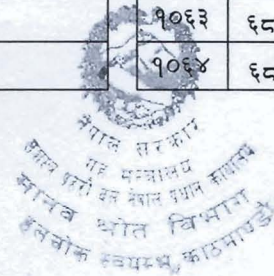 १०६३ ६८
१०६४ ६८
नेपाल सरकार
गृह मन्त्रालय
सशस्त्र प्रहरी बल नेपाल प्रधान कार्यालय
मानव श्रोत विभाग
हलचोक स्वयम्भू, काठमाण्डौ